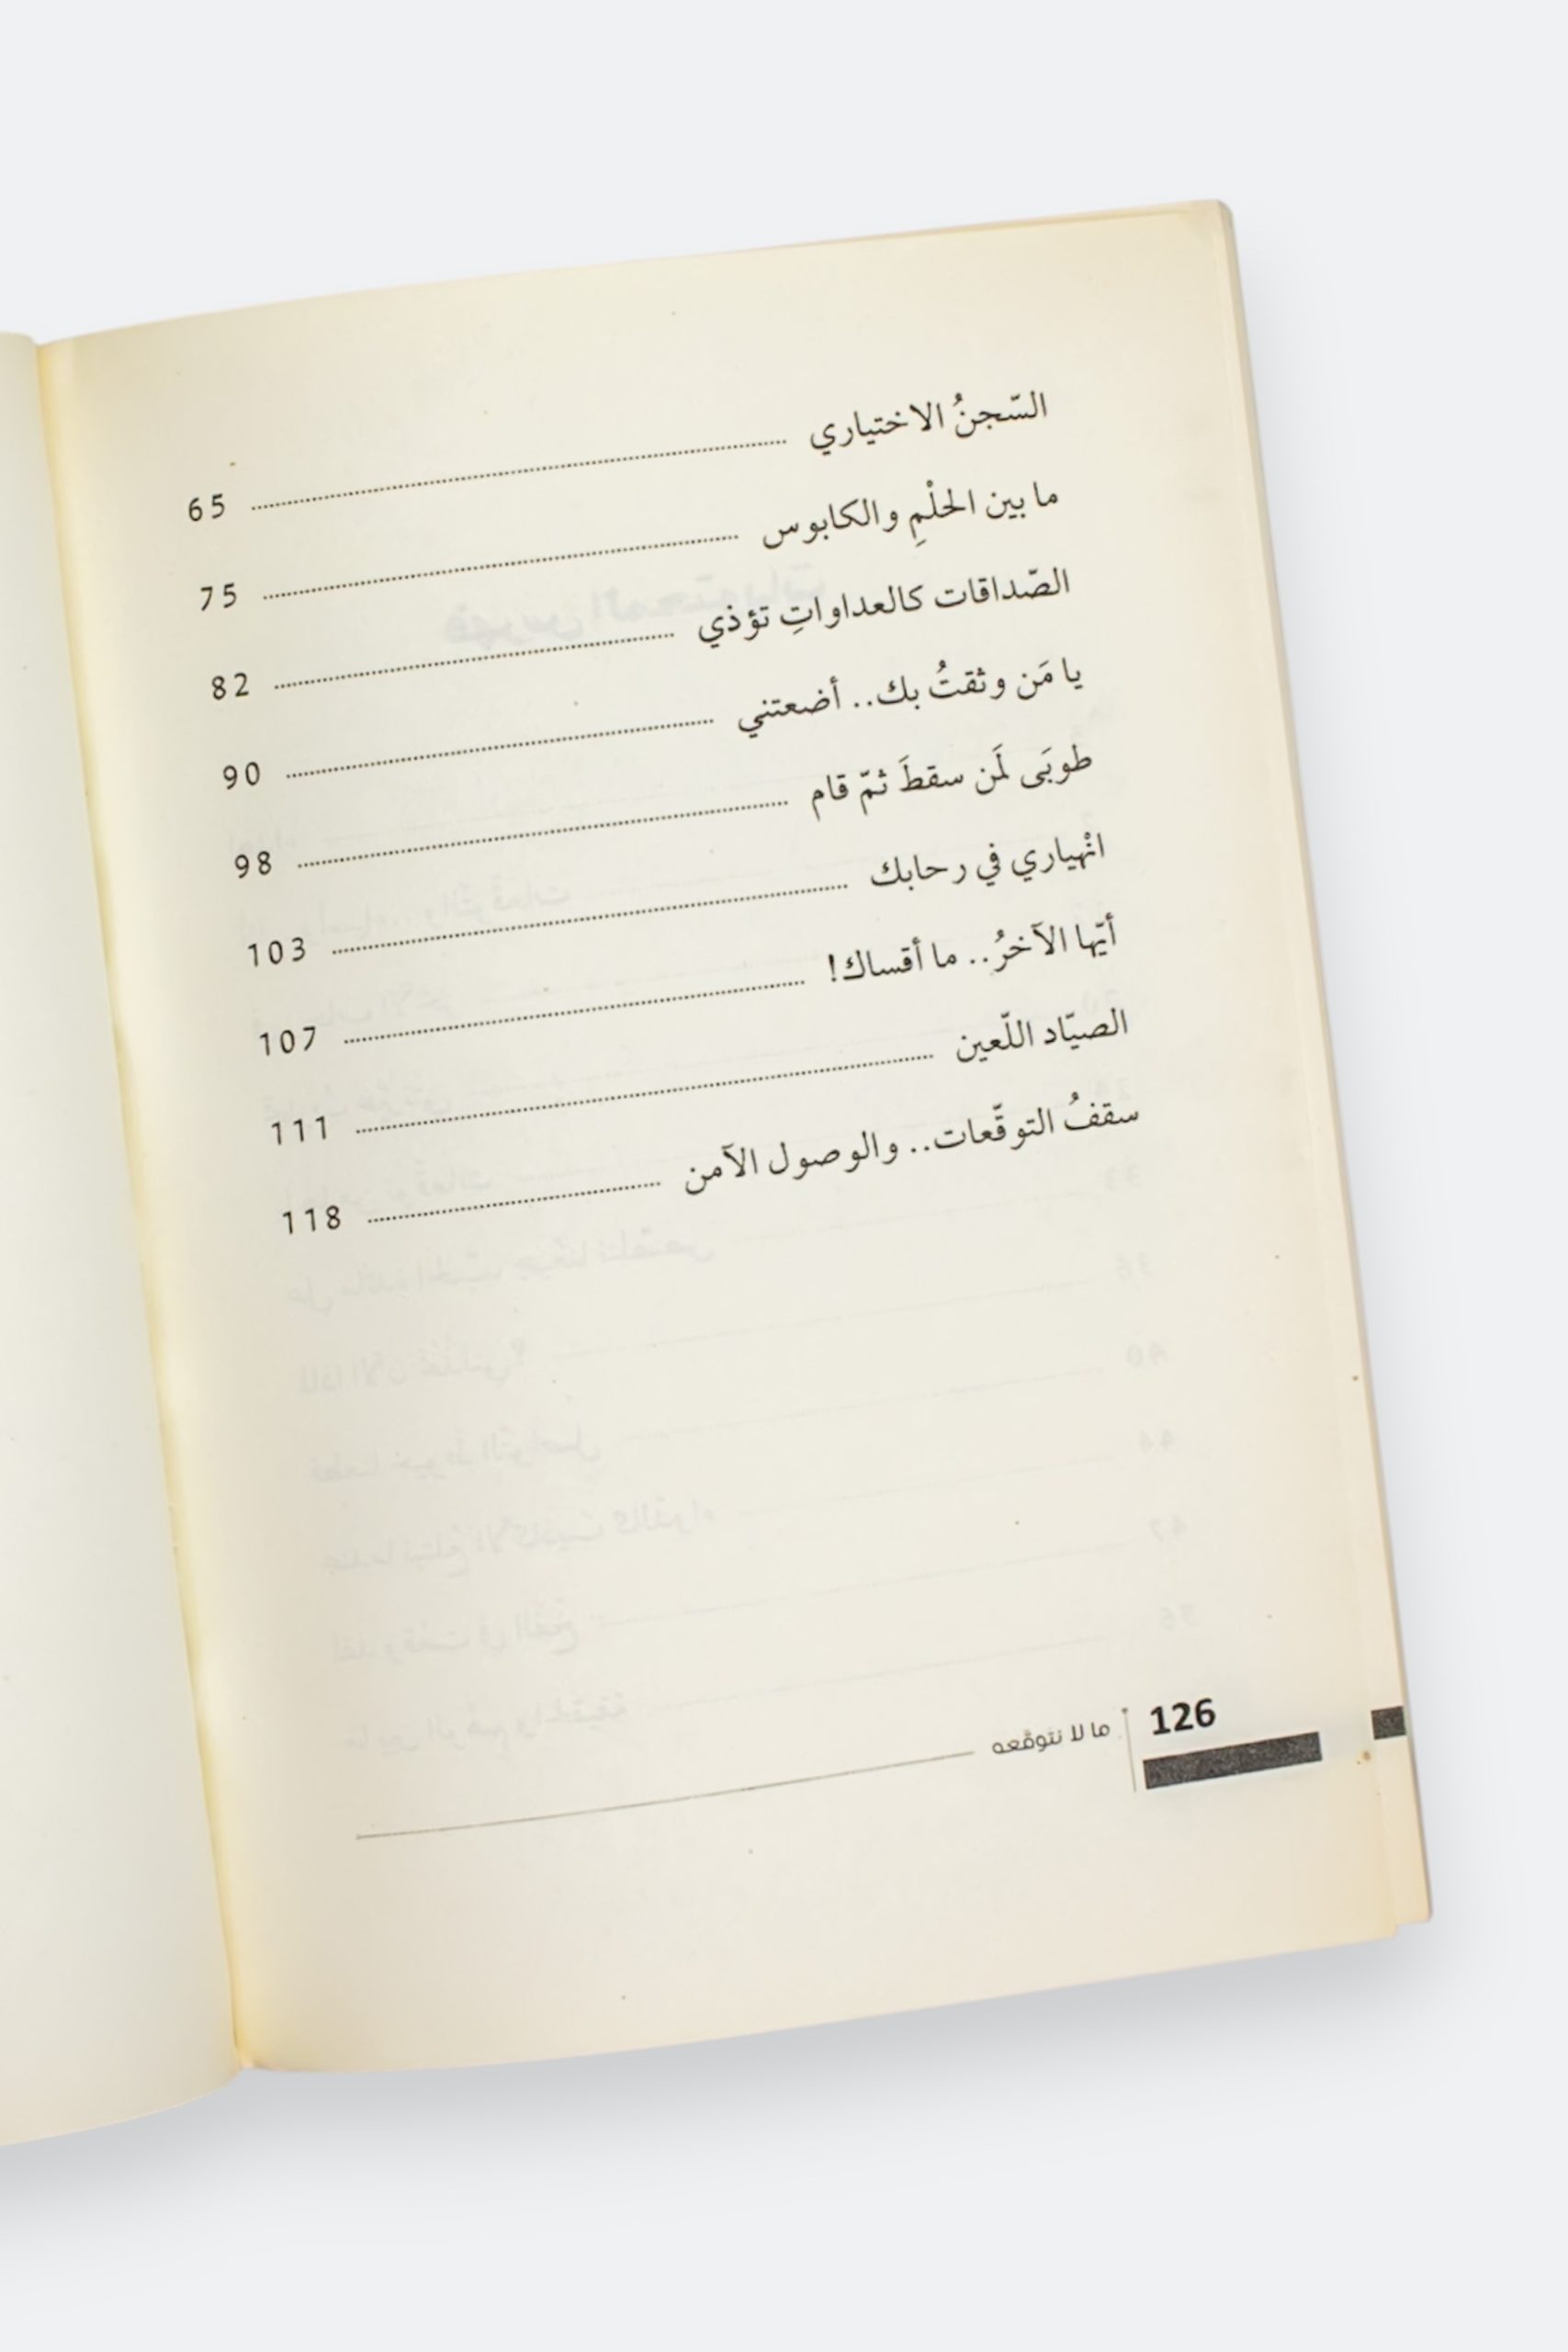 السّجنُ الاختياري ........ 65
ما بين الحلْمِ والكابوس ........ 75
الصّداقات كالعداواتِ تؤذي ........ 82
يا مَن وثقتُ بك.. أضعتني ........ 90
طوبَى لَمَن سقطَ ثمّ قام ........ 98
انْهياري في رحابك ........ 103
أيّها الآخرُ.. ما أقساك! ........ 107
الصيّاد اللّعين ........ 111
سقفُ التوقّعات.. والوصول الآمن ........ 118
126 ما لا نتوقّعه